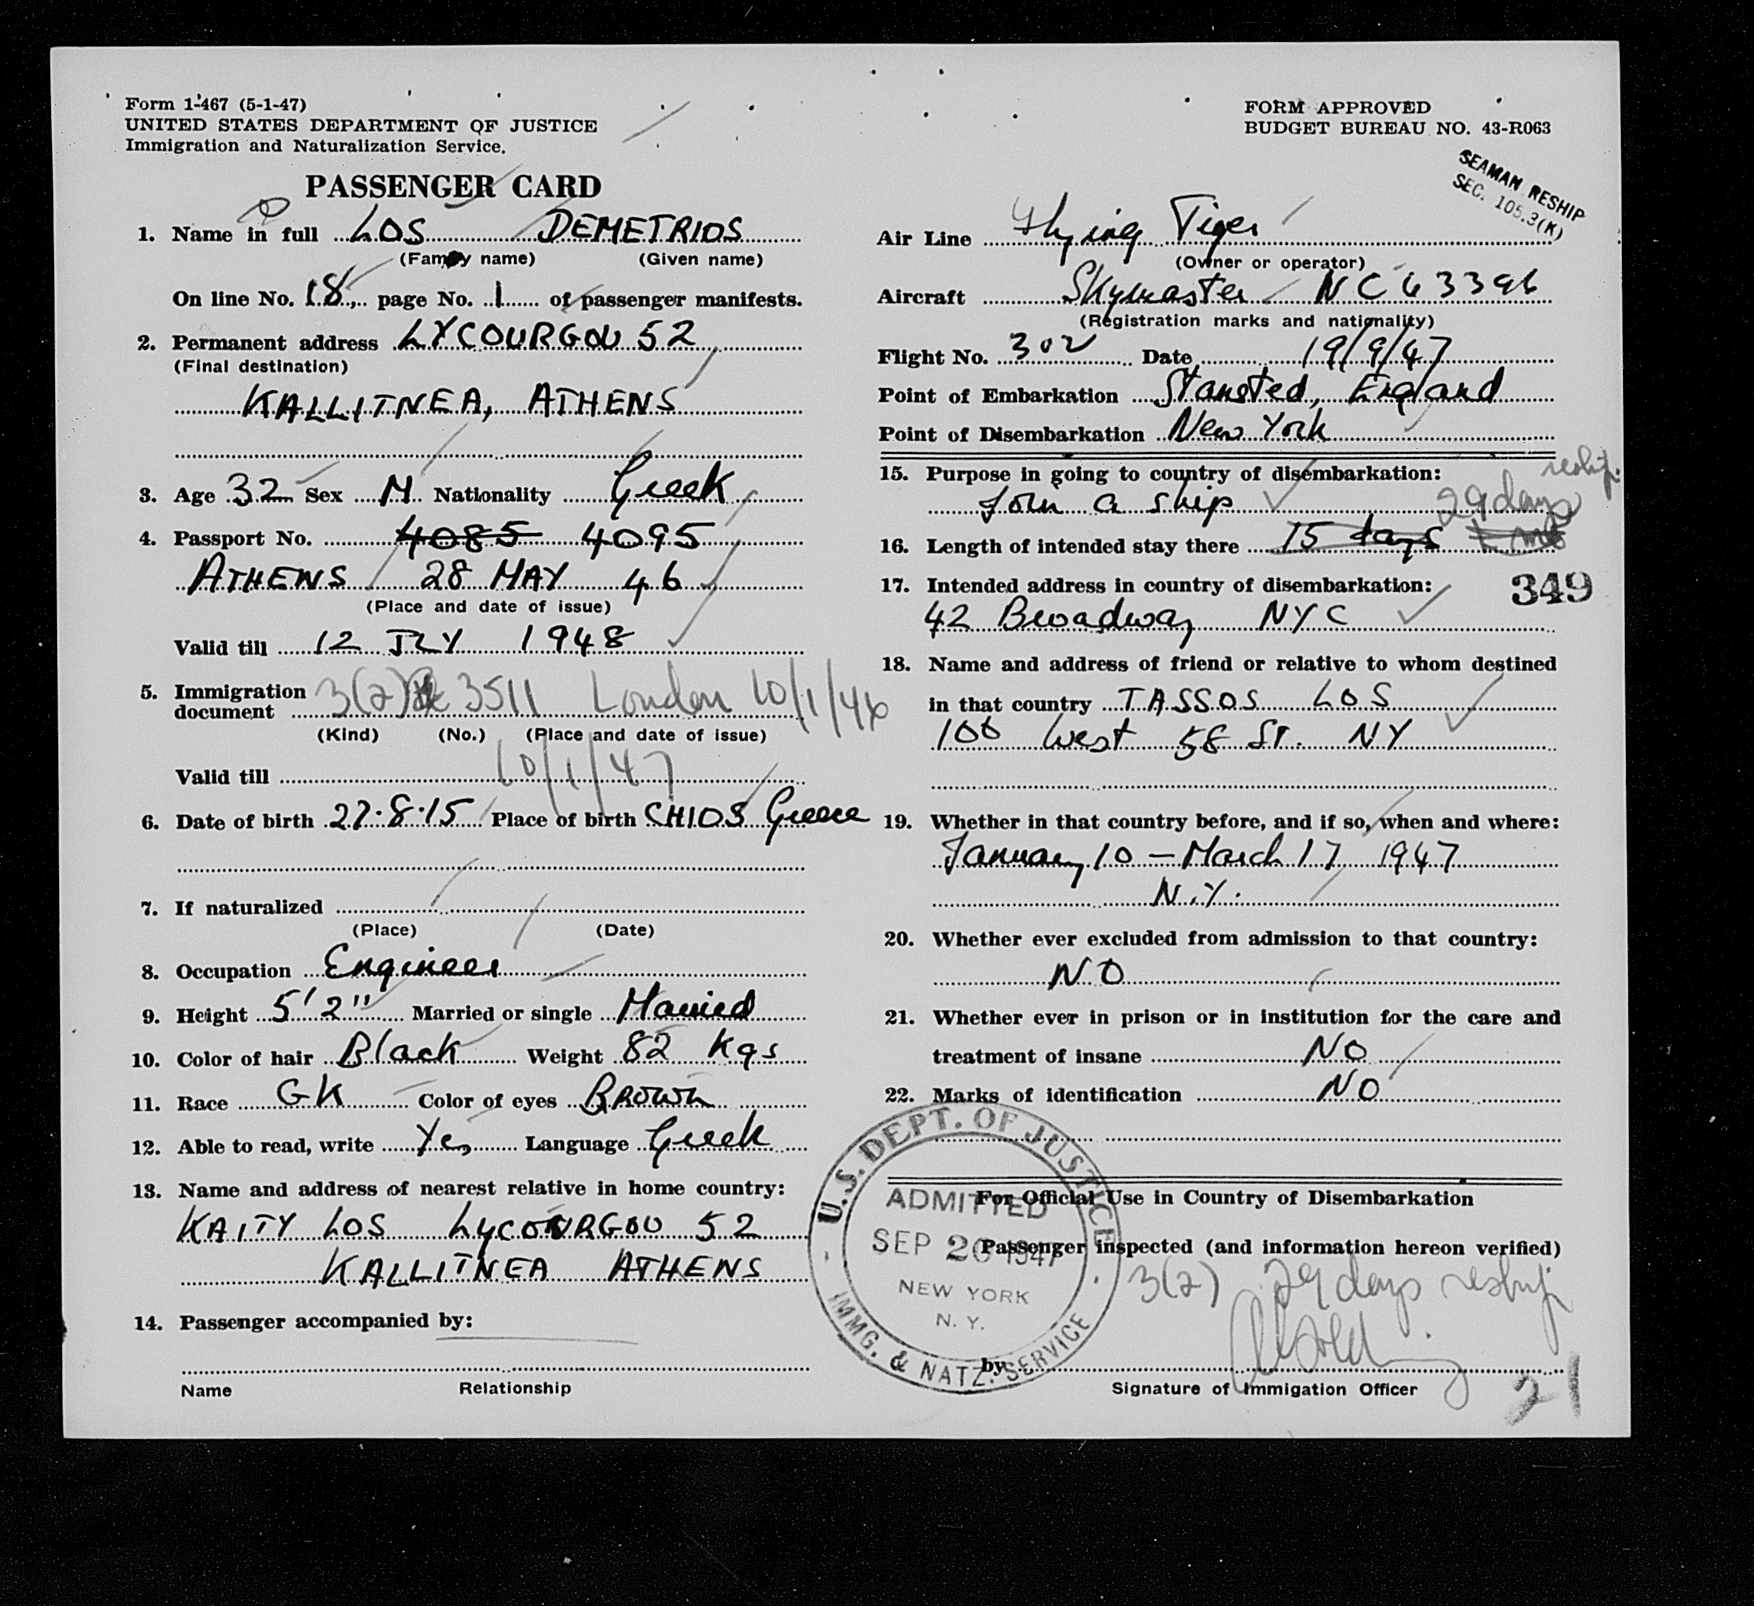 Form 1-467 (5-1-47)
UNITED STATES DEPARTMENT OF JUSTICE
Immigration and Naturalization Service.
PASSENGER CARD
1. Name in full LOS DEMETRIOS
(Family name) (Given name)
On line No. 18 page No. 1 of passenger manifests.
2. Permanent address LYCOURGOU 52
(Final destination)
KALLITNEA, ATHENS
3. Age 32 Sex M Nationality Greek
4. Passport No. 4085 4095
ATHENS 28 MAY 46
(Place and date of issue)
Valid till 12 JLY 1948
5. Immigration
document 3(2) 3511 London 10/1/46
(Kind) (No.) (Place and date of issue)
Valid till 10/1/47
6. Date of birth 27.8.15 Place of birth CHIOS Greece
7. If naturalized
(Place) (Date)
8. Occupation Engineer
9. Height 5'2" Married or single Married
10. Color of hair Black Weight 82 Kgs
11. Race GK Color of eyes BROWN
12. Able to read, write Yes Language Greek
13. Name and address of nearest relative in home country:
KAITY LOS LYCOURGOU 52
KALLITNEA ATHENS
14. Passenger accompanied by:
Name Relationship
FORM APPROVED
BUDGET BUREAU NO. 43-R063
SEAMAN RESHIP
SEC. 105.3(K)
Air Line Flying Tiger
(Owner or operator)
Aircraft Skymaster NC 63396
(Registration marks and nationality)
Flight No. 302 Date 19/9/47
Point of Embarkation Stansted, England
Point of Disembarkation New York
15. Purpose in going to country of disembarkation:
Join a ship
29 days reship.
16. Length of intended stay there 15 days
17. Intended address in country of disembarkation:
349
42 Broadway NYC
18. Name and address of friend or relative to whom destined
in that country TASSOS LOS
100 West 58 St. NY
19. Whether in that country before, and if so, when and where:
January 10 - March 17 1947
N.Y.
20. Whether ever excluded from admission to that country:
NO
21. Whether ever in prison or in institution for the care and
treatment of insane NO
22. Marks of identification NO
For Official Use in Country of Disembarkation
Passenger inspected (and information hereon verified)
3(2) 29 days reship
by
Signature of Immigation Officer
21
U.S. DEPT. OF JUSTICE
ADMITTED
SEP 20 1947
NEW YORK
N. Y.
IMMG. & NATZ. SERVICE